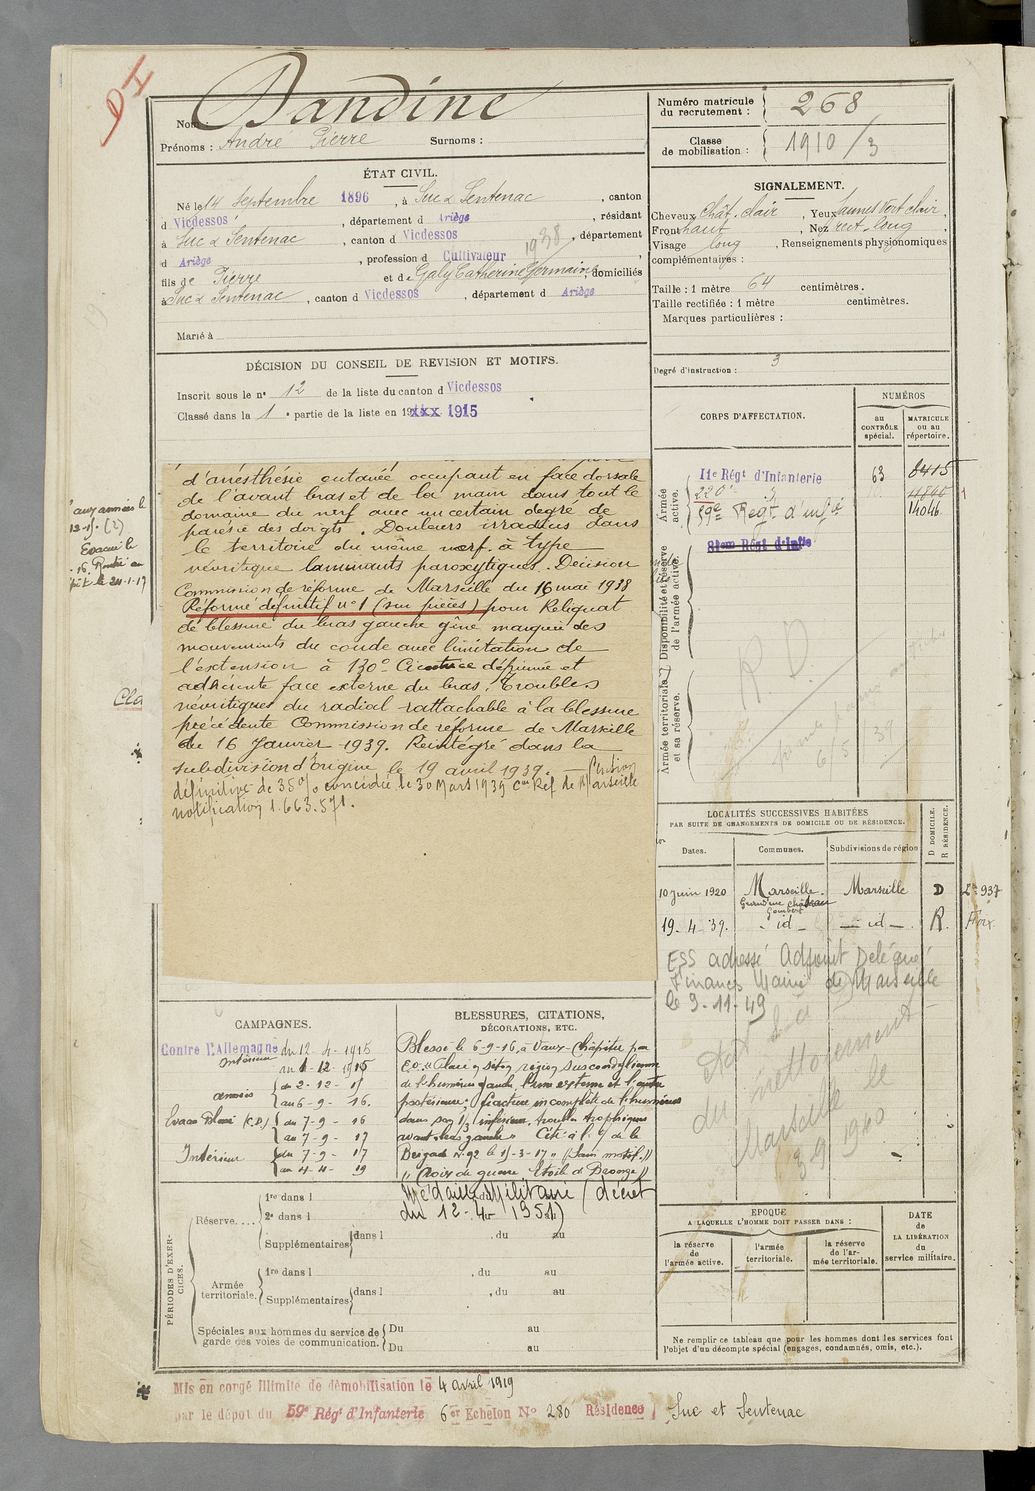 DI
Nom : Dandine
Prénoms : André Pierre Surnoms :
Numéro matricule du recrutement : 268
Classe de mobilisation : 1910/3
ÉTAT CIVIL.
Né le 14 Septembre 1896, à Suc & Sentenac, canton
d Vicdessos, département d Ariège, résidant
à Suc & Sentenac, canton d Vicdessos, département
1938
d Ariège, profession d Cultivateur
fils de Pierre et de Galy Catherine Germaine, domiciliés
à Suc & Sentenac, canton d Vicdessos, département d Ariège
Marié à
SIGNALEMENT.
Cheveux Chât. clair, Yeux Jaunes Vert clair,
Front haut, Nez rect. long,
Visage long, Renseignements physionomiques
complémentaires :
Taille : 1 mètre 64 centimètres.
Taille rectifiée : 1 mètre centimètres.
Marques particulières :
Degré d'instruction : 3
DÉCISION DU CONSEIL DE REVISION ET MOTIFS.
Inscrit sous le nº 12 de la liste du canton d Vicdessos
Classé dans la 1e partie de la liste en 19xxx 1915
CORPS D'AFFECTATION.
NUMÉROS
au CONTRÔLE spécial.
MATRICULE ou au répertoire.
Armée active.
11e Régt d'Infanterie 63 8415
220e
59e Régt d'Infie 14046
Disponibilité et réserve de l'armée active.
81eme Régt d'Infie
Armée territoriale et sa réserve.
R.D.
6/5 39
aux armées le
12-1). (2)
Evacué le
.16. Rentré au
pôt le 24-1-19
Cla
d'anesthésie cutanée occupant en face dorsale
de l'avant bras et de la main dans tout le
domaine du nerf avec un certain degré de
parésie des doigts. Douleurs irradiées dans
le territoire du même nerf. à type
névritique laminants paroxytiques. Décision
Commission de réforme de Marseille du 16 mai 1938
Réformé définitif nº1 (sur pièces) pour Reliquat
de blessure du bras gauche gêne marquée des
mouvements du coude avec limitation de
l'extension à 130º Cicatrice déprimée et
adhérente face externe du bras. Troubles
névritiques du radial rattachable à la blessure
précédente Commission de réforme de Marseille
du 16 Janvier 1939. Réintégré dans la
subdivision d'origine le 19 avril 1939. — Pension
définitive de 35% concédée le 30 Mars 1939 Con Réf. de Marseille
notification 1.663.571.
LOCALITÉS SUCCESSIVES HABITÉES
PAR SUITE DE CHANGEMENTS DE DOMICILE OU DE RÉSIDENCE.
Dates. Communes. Subdivisions de région D DOMICILE. R RÉSIDENCE.
10 Juin 1920 Marseille. Marseille D Lt 937
Grand'rue Château Gombert
19-4-39. - id - — id — R. Foix
ESS adressé Adjoint Délégué
Finances Mairie de Marseille
le 3-11-49
du nettoiement
Marseille le
3 9 1940
CAMPAGNES.
Contre l'Allemagne du 12-4-1915
Intérieur au 1-12-1915
armées du 2-12-15
au 6-9-16.
Evacué Blessé (C.D.) du 7-9-16
au 7-9-17
Intérieur du 7-9-17
au 4-4-19
BLESSURES, CITATIONS,
DÉCORATIONS, ETC.
Blessé le 6-9-16, à Vaux-Chapitre par
E.O. "Plaie en séton région suscondylienne
de l'humérus gauche, brûne externe et bientôt
postérieure; fracture incomplète de l'humérus
dans son 1/3 inférieur, trouble trophiques
avant bras gauche" Cité à l'O de la
Brigade nº 92 le 15-3-17 "(Sans motif)"
"Croix de guerre Etoile de Bronze"
Médaille Militaire (décret
du 12-4- 1951)
PÉRIODES D'EXERCICES.
Réserve.... 1re dans l
2e dans l
Supplémentaires dans l , du au
Armée territoriale. 1re dans l , du au
Supplémentaires dans l , du au
Spéciales aux hommes du service de garde des voies de communication. Du au
Du au
EPOQUE
A LAQUELLE L'HOMME DOIT PASSER DANS :
la réserve de l'armée active.
l'armée territoriale.
la réserve de l'armée territoriale.
DATE de LA LIBÉRATION du service militaire.
Ne remplir ce tableau que pour les hommes dont les services font
l'objet d'un décompte spécial (engagés, condamnés, omis, etc.).
Mis en congé illimité de démobilisation le 4 avril 1919
par le dépôt du 59e Régt d'Infanterie 6er Echelon Nº 280 Résidence) Suc et Sentenac